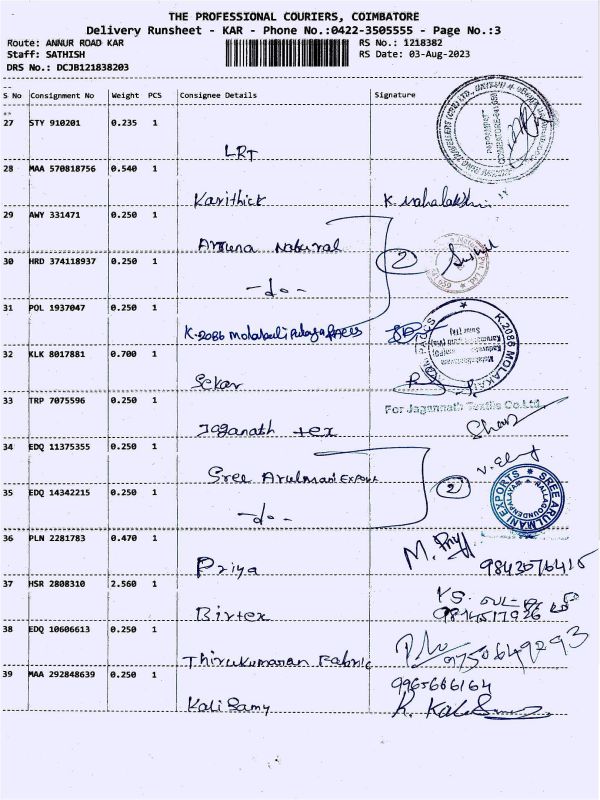 THE PROFESSIONAL COURIERS, COIMBATORE
Delivery Runsheet - KAR - Phone No.:0422-3505555 - Page No.:3
Route: ANNUR ROAD KAR RS No.: 1218382
Staff: SATHISH RS Date: 03-Aug-2023
DRS No.: DCJB121838203
S No Consignment No Weight PCS Consignee Details Signature
27 STY 910201 0.235 1
LRT
28 MAA 570818756 0.540 1
Karithick K. Mahalakshmi
29 AWY 331471 0.250 1
Aruna Natural
30 HRD 374118937 0.250 1 2
-do-
31 POL 1937047 0.250 1
K.2086 Molapalayam PACCS
K.2086 MOLAKAL
32 KLK 8017881 0.700 1
Sekar
33 TRP 7075596 0.250 1 For Jagannath Textile Co.Ltd.,
Jaganath tex
34 EDQ 11375355 0.250 1
Sree Arulmani Export
35 EDQ 14342215 0.250 1 2 SREE ARULMANI EXPORTS
-do-
36 PLN 2281783 0.470 1 M. Priy
Priya
37 HSR 2808310 2.560 1
Birtex
38 EDQ 10606613 0.250 1 9750649293
Thirukumaran Fabric
39 MAA 292848639 0.250 1 9965666164
Kalisamy R. Kalis